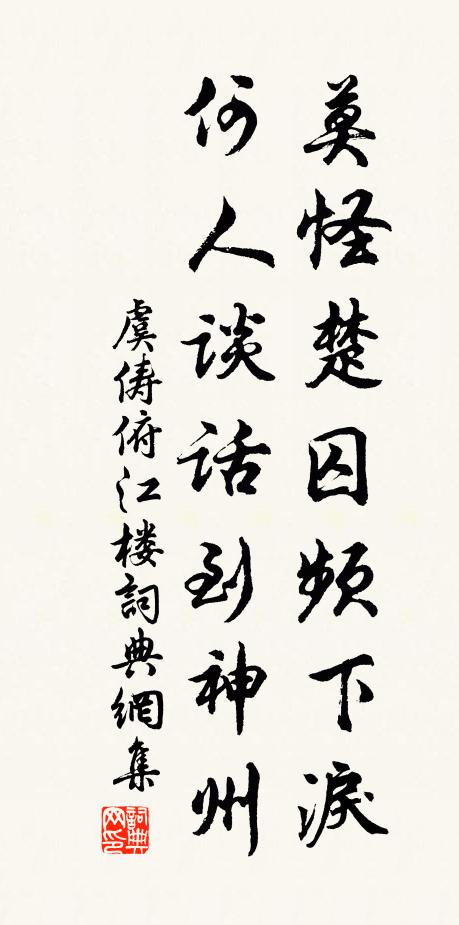 莫怪楚囚频下淚
何人谈话到神州
虞俦俯江楼詞典網集
詞典网印